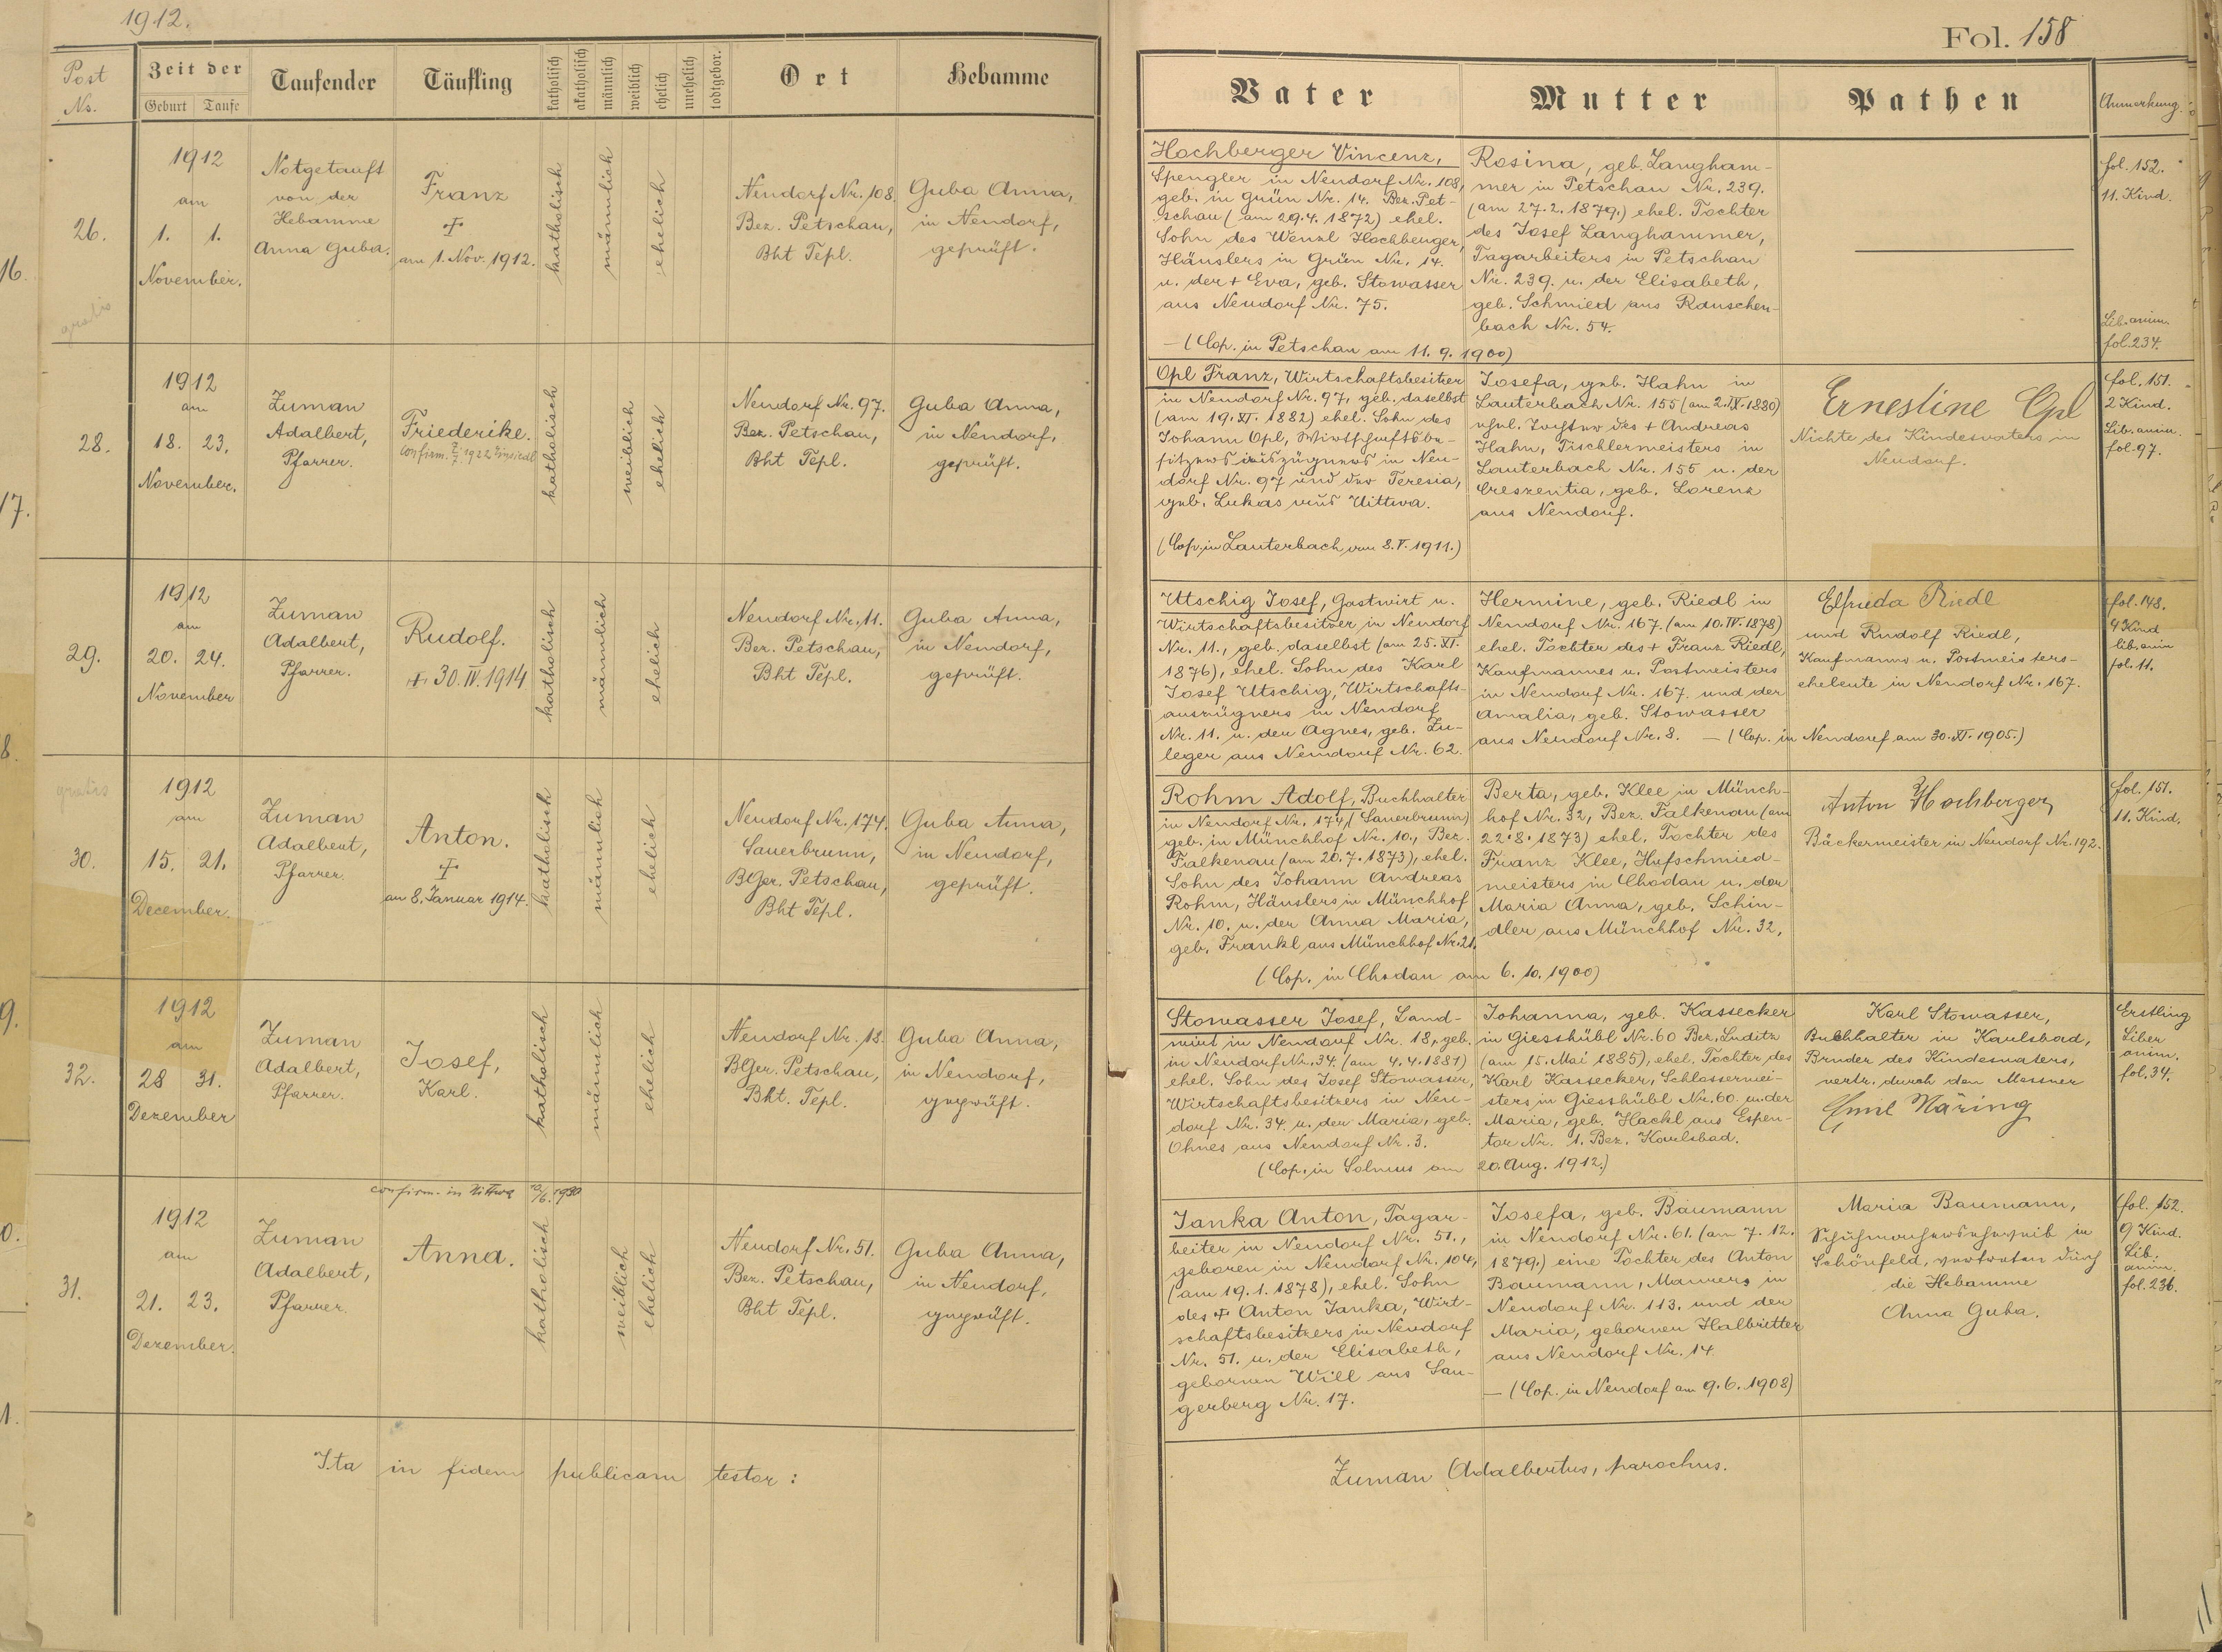 1912.
Post Nr.
Zeit der
Geburt
Taufe
Taufender
Täufling
katholisch
akatholisch
männlich
weiblich
ehelich
unehelich
todtgebor.
Ort
Hebamme
26.
1912
am
1. 1.
November.
gratis
Notgetauft
von der
Hebamme
Anna Guba.
Franz
+
am 1. Nov. 1912.
katholisch
männlich
ehelich
Neudorf Nr. 108.
Bez. Petschau,
Bht Tepl.
Guba Anna,
in Neudorf,
geprüft.
28.
1912
am
18. 23.
November.
Zuman
Adalbert,
Pfarrer.
Friederike.
Confirm. 1922 Einsiedl
katholisch
weiblich
ehelich
Neudorf Nr. 97.
Bez. Petschau,
Bht Tepl.
Guba Anna,
in Neudorf,
geprüft.
29.
1912
am
20. 24.
November
Zuman
Adalbert,
Pfarrer.
Rudolf.
+ 30. IV. 1914
katholisch
männlich
ehelich
Neudorf Nr. 11.
Bez. Petschau,
Bht Tepl.
Guba Anna,
in Neudorf,
geprüft.
gratis
30.
1912
am
15. 21.
December.
Zuman
Adalbert,
Pfarrer.
Anton.
+
am 8. Januar 1914.
katholisch
männlich
ehelich
Neudorf Nr. 174.
Sauerbrunn,
BGer. Petschau,
Bht Tepl.
Guba Anna,
in Neudorf,
geprüft.
32.
1912
am
28 31.
Dezember
Zuman
Adalbert,
Pfarrer.
Josef,
Karl.
katholisch
männlich
ehelich
Neudorf Nr. 18.
BGer. Petschau,
Bht. Tepl.
Guba Anna,
in Neudorf,
geprüft.
confirm. in Uittwa 1930
31.
1912
am
21. 23.
Dezember.
Zuman
Adalbert,
Pfarrer.
Anna.
katholisch
weiblich
ehelich
Neudorf Nr. 51.
Bez. Petschau,
Bht Tepl.
Guba Anna,
in Neudorf,
geprüft.
Ita in fidem publicam testor:
Fol. 158
Vater
Mutter
Pathen
Anmerkung.
Hochberger Vincenz,
Spengler in Neudorf Nr. 108,
geb. in Grün Nr. 14. Bez. Pet-
schau (am 29.4.1872) ehel.
Sohn des Wenzl Hochberger,
Häuslers in Grün Nr. 14.
u. der + Eva, geb. Stowasser
aus Neudorf Nr. 75.
Rosina, geb. Langham-
mer in Petschau Nr. 239.
(am 27.2.1879.) ehel. Tochter
des Josef Langhammer,
Tagarbeiters in Petschau
Nr. 239. u. der Elisabeth,
geb. Schmied aus Rauschen-
bach Nr. 54.
— (Cop. in Petschau am 11.9.1900)
fol. 152.
11. Kind.
Lib. anim.
fol. 234.
Opl Franz, Wirtschaftsbesitzer
in Neudorf Nr. 97, geb. daselbst
(am 19. XI. 1882) ehel. Sohn des
Johann Opl, Wirtschaftsbe-
sitzers auszügners in Neu-
dorf Nr. 97 und der Teresia,
geb. Lukas aus Uittwa.
(Cop. in Lauterbach am 8.V.1911.)
Josefa, geb. Hahn in
Lauterbach Nr. 155 (am 2. IX. 1880)
ehel. Tochter des + Andreas
Hahn, Tischlermeisters in
Lauterbach Nr. 155 u. der
Creszentia, geb. Lorenz
aus Neudorf.
Ernestine Opl
Nichte des Kindesvaters in
Neudorf.
fol. 151.
2 Kind.
Lib. anim.
fol. 97.
Utschig Josef, Gastwirt u.
Wirtschaftsbesitzer in Neudorf
Nr. 11., geb. daselbst (am 25. XI.
1876), ehel. Sohn des Karl
Josef Utschig, Wirtschafts-
auszügners in Neudorf
Nr. 11. u. der Agnes, geb. Zu-
leger aus Neudorf Nr. 62.
Hermine, geb. Riedl in
Neudorf Nr. 167. (am 10. IV. 1878)
ehel. Tochter des + Franz Riedl,
Kaufmannes u. Postmeisters
in Neudorf Nr. 167. und der
Amalia, geb. Stowasser
aus Neudorf Nr. 8. — (Cop. in Neudorf am 30. XI. 1905.)
Elfrieda Riedl
und Rudolf Riedl,
Kaufmanns u. Postmeisters-
eheleute in Neudorf Nr. 167.
fol. 148.
4 Kind
lib. anim
fol. 11.
Rohm Adolf, Buchhalter
in Neudorf Nr. 174 (Sauerbrunn)
geb. in Münchhof Nr. 10., Bez.
Falkenau (am 20.7.1873), ehel.
Sohn des Johann Andreas
Rohm, Häuslers in Münchhof
Nr. 10. u. der Anna Maria,
geb. Frankl aus Münchhof Nr. 21.
Berta, geb. Klee in Münch-
hof Nr. 32, Bez. Falkenau (am
22.8.1873) ehel. Tochter des
Franz Klee, Hufschmied-
meisters in Chodau u. der
Maria Anna, geb. Schin-
dler aus Münchhof Nr. 32.
(Cop. in Chodau am 6.10.1900)
Anton Hochberger,
Bäckermeister in Neudorf Nr. 192.
fol. 151.
11. Kind.
Stowasser Josef, Land-
wirt in Neudorf Nr. 18, geb.
in Neudorf Nr. 34. (am 4.4.1881)
ehel. Sohn des Josef Stowasser,
Wirtschaftsbesitzers in Neu-
dorf Nr. 34 u. der Maria, geb.
Ohnes aus Neudorf Nr. 3.
Johanna, geb. Kassecker
in Giesshübl Nr. 60 Bez. Luditz
(am 15. Mai 1885), ehel. Tochter des
Karl Kassecker, Schlossermei-
sters in Giesshübl Nr. 60. u. der
Maria, geb. Hackl aus Espen-
tor Nr. 1. Bez. Karlsbad.
(Cop. in Solmus am 20. Aug. 1912.)
Karl Stowasser,
Buchhalter in Karlsbad,
Bruder des Kindesvaters,
vertr. durch den Messner
Emil Näring
Erstling
Liber
anim.
fol. 34.
Janka Anton, Tagar-
beiter in Neudorf Nr. 51.,
geboren in Neudorf Nr. 104,
(am 19.1.1878), ehel. Sohn
des + Anton Janka, Wirt-
schaftsbesitzers in Neudorf
Nr. 51. u. der Elisabeth,
gebornen Will aus San-
gerberg Nr. 17.
Josefa, geb. Baumann
in Neudorf Nr. 61. (am 7.12.
1879.) eine Tochter des Anton
Baumann, Maurers in
Neudorf Nr. 113. und der
Maria, gebornen Halbritter
aus Neudorf Nr. 14.
— (Cop. in Neudorf am 9.6.1908)
Maria Baumann,
in
Schönfeld, vertreten durch
die Hebamme
Anna Guba.
fol. 152.
9 Kind.
Lib.
anim.
fol. 236.
Zuman Adalbertus, parochus.